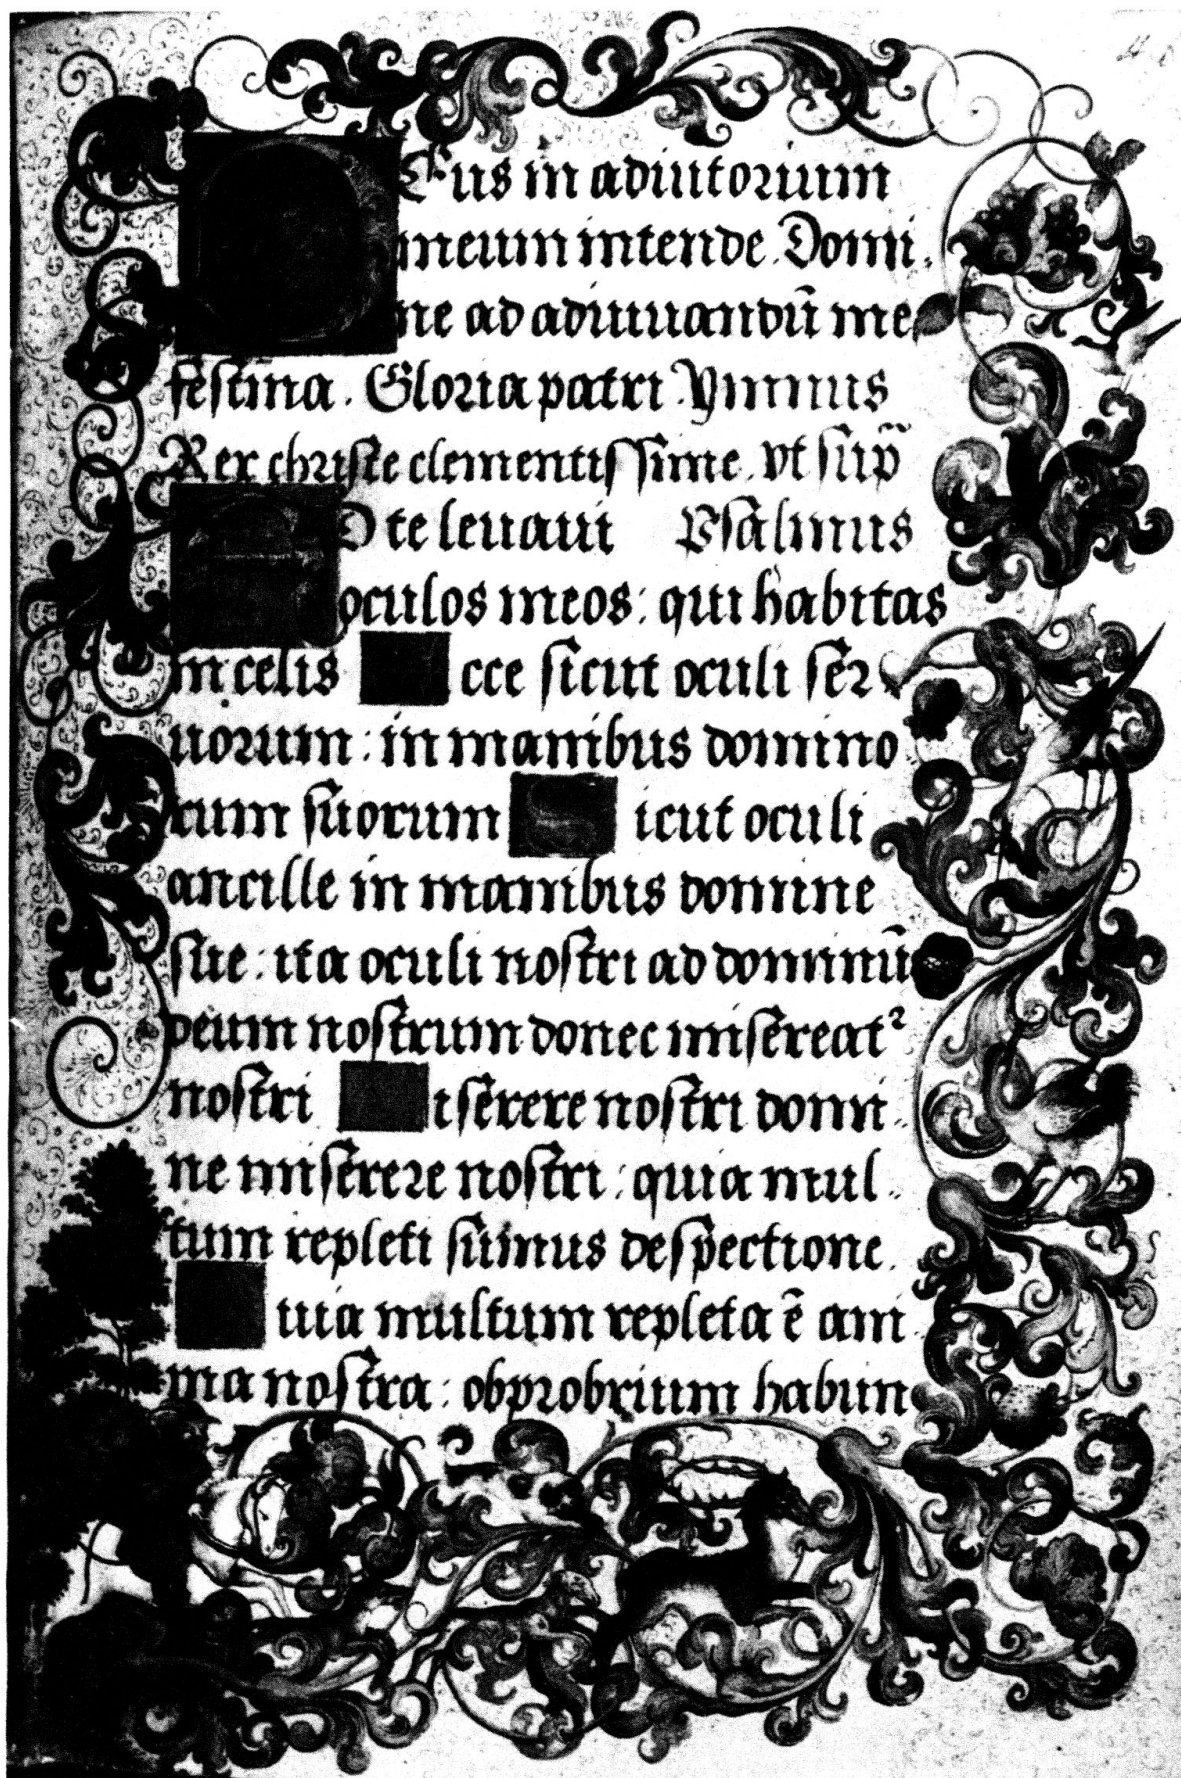 DEus in adiutorium
meum intende. Domi
ne ad adiuuandū me
festina. Gloria patri. Ymnus
Rex christe clementissime. vt sup̄
AD te leuaui Psalmus
oculos meos: qui habitas
in celis Ecce sicut oculi ser
uorum: in manibus domino
rum suorum Sicut oculi
ancille in manibus domine
sue: ita oculi nostri ad dominū
deum nostrum donec misereat²
nostri Miserere nostri domi
ne miserere nostri: quia mul
tum repleti sumus despectione.
Quia multum repleta ē ani
ma nostra: obprobrium habun